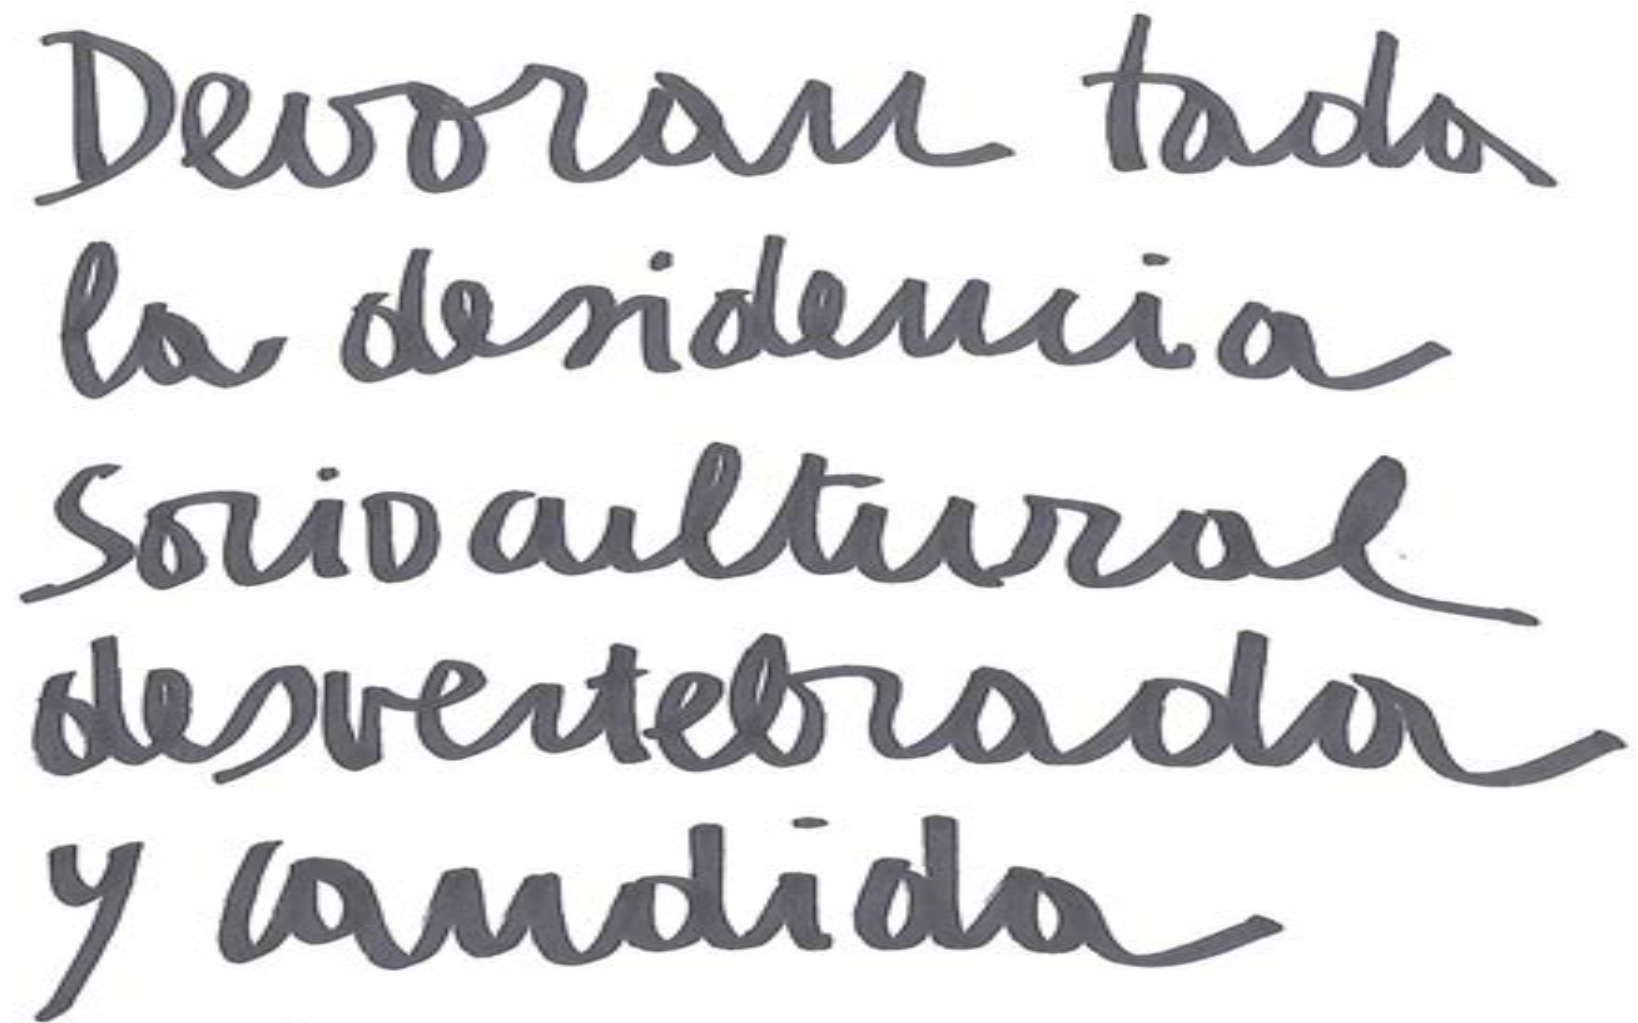 Devoran tada
la desidencia
Sociocultural
desvertebrada
y candida